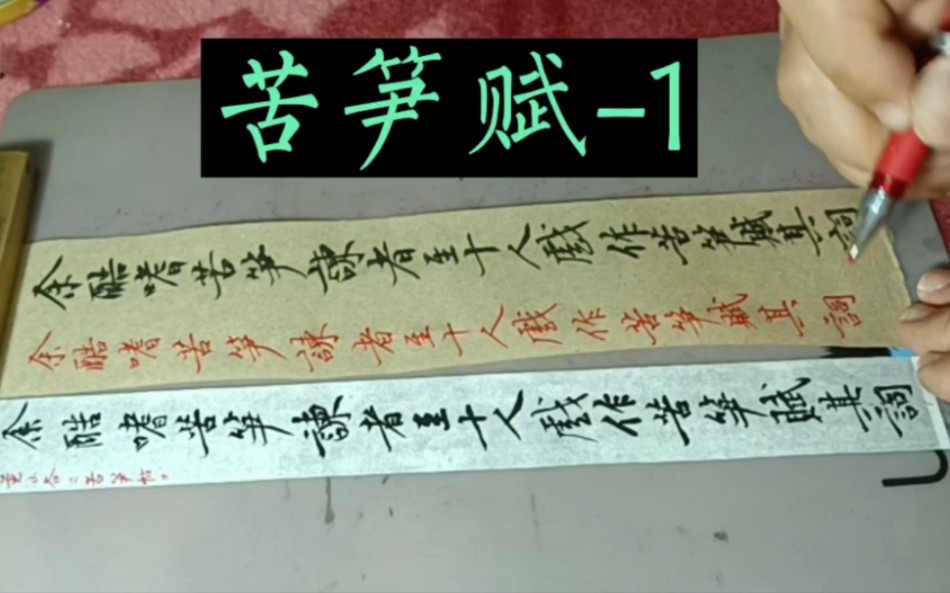 苦笋赋-1
余酷嗜苦笋諫者至十人戲作苦笋賦其詞
余酷嗜苦笋諫者至十人戲作苦笋賦其詞
余酷嗜苦笋諫者至十人戲作苦笋賦其詞